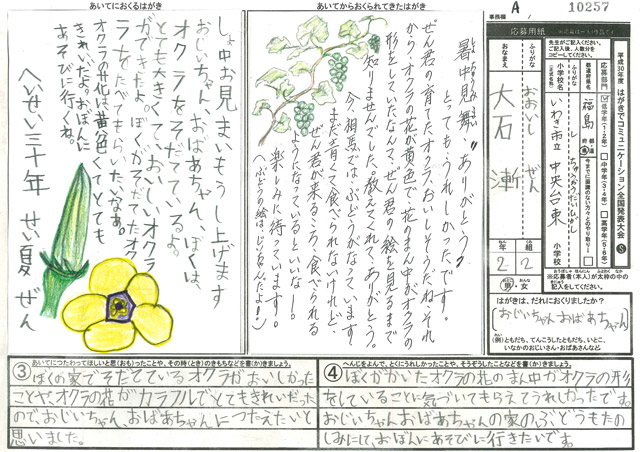 あいてにおくるはがき
しょ中お見まいもうし上げます
おじいちゃん、おばあちゃん、ぼくは、
オクラをそだてているよ。
とても大きくて、おいしいオクラ
ができたよ。ぼくがそだてたオク
ラ、たべてもらいたいなあ。
オクラの花は黄色くてとても
きれいだよ。おぼんに
あそびに行くね。
へいせい三十年 せい夏 ぜん
あいてからおくられてきたはがき
暑中見舞 ありがとう
とってもうれしかったです。
ぜん君の育てたオクラ、おいしそうだね。それ
からオクラの花が黄色で花のまん中がオクラの
形をしていたなんて、ぜん君の絵を見るまで
知りませんでした。教えてくれて、ありがとう。
今、相馬では、ぶどうがなっています。
まだ青くて食べられないけれど、
ぜん君が来るころ、食べられる
ようになっているといいなー。
楽しみに待っています。
(ぶどうの絵は、じいじなんだよ!)
事務欄
A
10257
応募用紙
平成30年度 はがきでコミュニケーション全国発表大会
S
先生がご記入ください。
ご記入後、人数分を
コピーしてください。
応募部門
低学年(1・2年)
中学年(3・4年)
高学年(5・6年)
都道府県名
福島
都道府県
小学校名
(正式名称)
いわき市立 中央台東
小学校
ふりがな
おおいし ぜん
おなまえ
大石 漸
年 2
組 2
男・女
※応募者(本人)が太枠の中の
記入をしてください。
はがきは、だれにおくりましたか?
おじいちゃん おばあちゃん
(例)ともだち、てんこうしたともだち、いとこ、
いなかのおじいさん・おばあさんなど
あいてにつたわってほしいと思(おも)ったことや、その時(とき)のきもちなどを書(か)きましょう。
③ ぼくの家でそだてているオクラがおいしかった
ことや、オクラの花がカラフルでとてもきれいだった
ので、おじいちゃん、おばあちゃんにつたえたいと
思いました。
へんじをよんで、とくにうれしかったことや、そうぞうしたことなどを書(か)きましょう。
④ ぼくがかいたオクラの花のまん中がオクラの形
をしていることに気づいてもらえてうれしかったです。
おじいちゃんおばあちゃんの家のぶどうもたの
しみにして、おぼんにあそびに行きたいです。